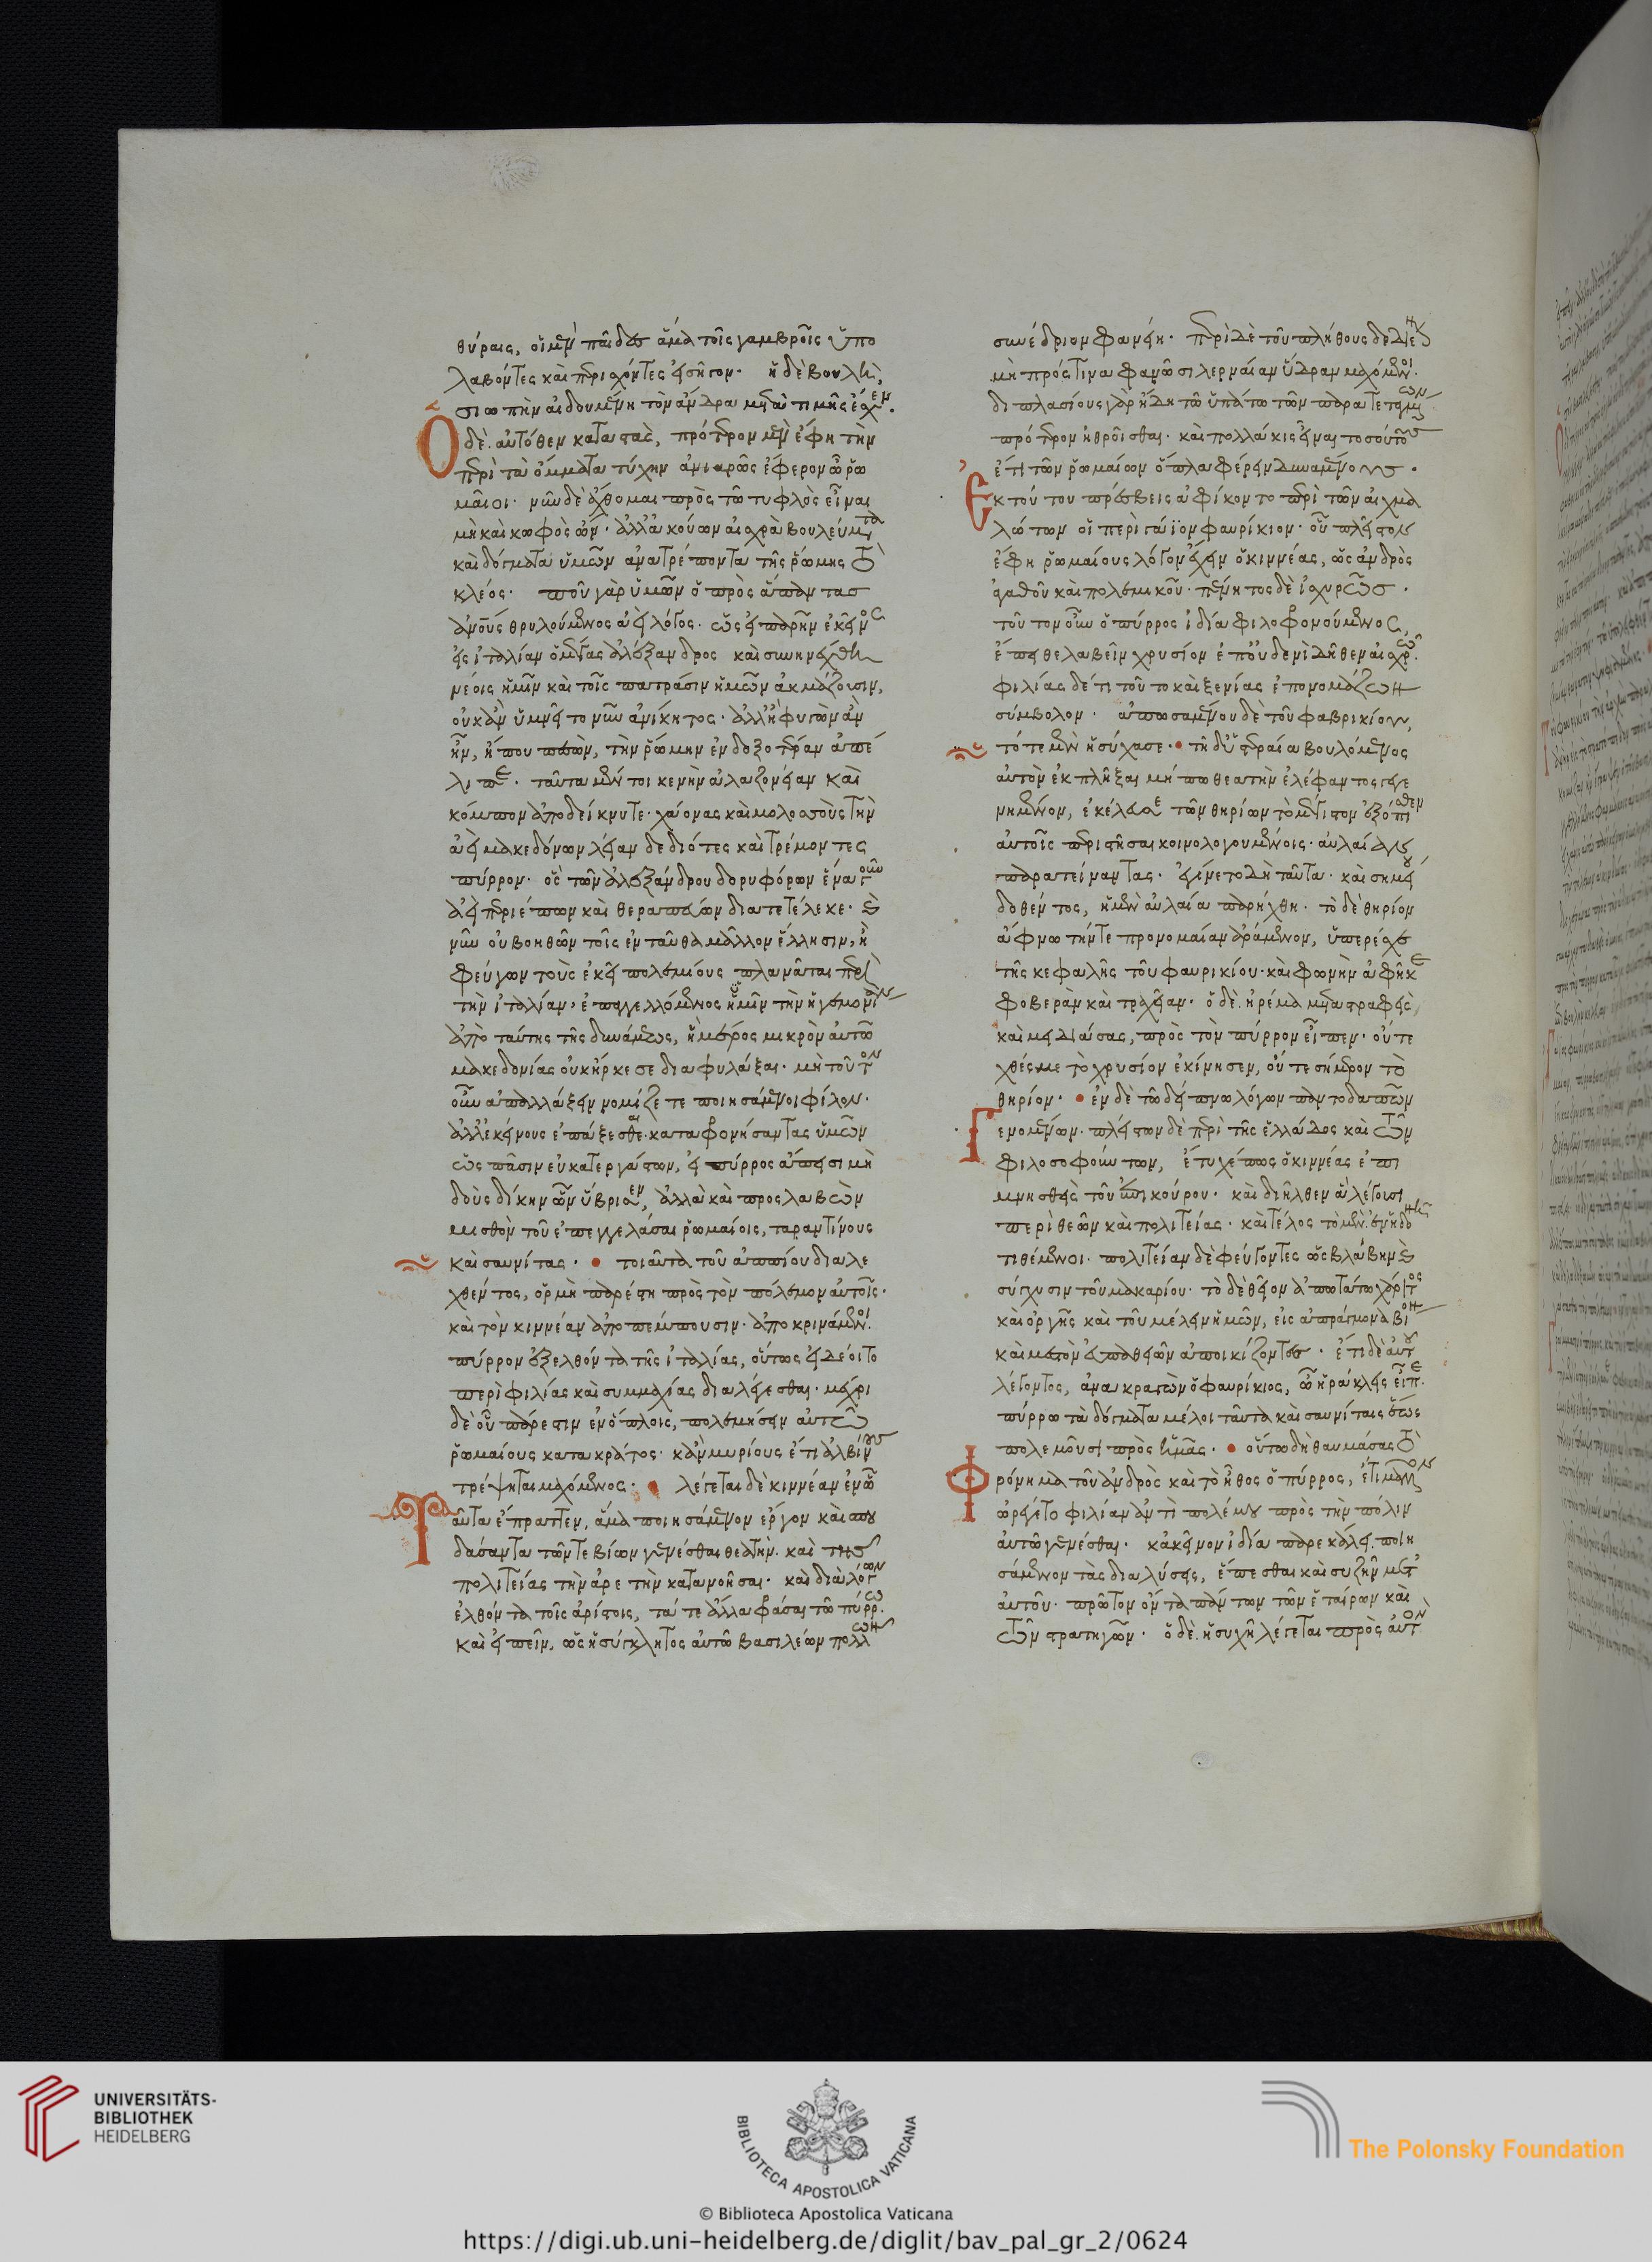 θύραις, οἱ μὲν παῖδες ἅμα τοῖς γαμβροῖς ὑπο
λαβόντες καὶ περισχόντες εἰσῆγον. ἡ δὲ βουλὴ,
σιωπὴν αἰδουμένη τὸν ἄνδρα μετὰ τιμῆς ἔσχεν.
Ὁ δὲ αὐτόθεν καταστὰς, πρότερον μὲν ἔφη τὴν
περὶ τὰ ὄμματα τύχην ἀνιαρῶς ἔφερον ὦ ῥω
μαῖοι. νῦν δὲ ἄχθομαι πρὸς τῷ τυφλὸς εἶναι
μὴ καὶ κωφὸς ὤν. ἀλλ' ἀκούων αἰσχρὰ βουλεύματα
καὶ δόγματα ὑμῶν ἀνατρέποντα τῆς ῥώμης τὸ
κλέος. ποῦ γὰρ ὑμῶν ὁ πρὸς ἅπαντας
ἀνους θρυλούμενος ἀεὶ λόγος. ὡς εἰ παρῆν ἐκεῖνος
εἰς ἰταλίαν ὁ μέγας ἀλέξανδρος καὶ συνηνέχθη
νέοις ἡμῖν καὶ τοῖς πατράσιν ἡμῶν ἀκμάζουσιν,
οὐκ ἂν ὑμνεῖτο νῦν ἀνίκητος. ἀλλ' ἢ φυγὼν ἂν
ἦν, ἤ που πεσὼν, τὴν ῥώμην ἐνδοξοτέραν ἀπέ
λιπε. ταῦτα μέντοι κενὴν ἀλαζονείαν καὶ
κόμπον ἀποδείκνυτε. χάονας καὶ μολοσσοὺς τὴν
ἀεὶ μακεδόνων λείαν δεδιότες καὶ τρέμοντες
πύρρον. ὃς τῶν ἀλεξάνδρου δορυφόρων ἕνα γοῦν
ἀεὶ περιέπων καὶ θεραπεύων διατετέλεκε. καὶ
νῦν οὐ βοηθῶν τοῖς ἐνταῦθα μᾶλλον ἕλλησιν, ἢ
φεύγων τοὺς ἐκεῖ πολεμίους πλανᾶται περὶ
τὴν ἰταλίαν, ἐπαγγελλόμενος ἡμῖν τὴν ἡγεμονίαν
ἀπὸ ταύτης τῆς δυνάμεως, ἣ μέρος μικρὸν αὐτῷ
μακεδονίας οὐκ ἤρκεσε διαφυλάξαι. μὴ τοῦτον
οὖν ἀπαλλάξειν νομίζετε ποιησάμενοι φίλον.
ἀλλ' ἐκείνους ἐπάξεσθαι. καταφρονήσαντας ὑμῶν
ὡς πᾶσιν εὐκατεργάστων, εἰ πύρρος ἄπεισι μὴ
δοὺς δίκην ὧν ὕβρισεν, ἀλλὰ καὶ προσλαβὼν
μισθὸν τοῦ ἐπεγγελάσαι ῥωμαίοις, ταραντίνους
καὶ σαυνίτας. τοιαῦτα τοῦ ἀππίου διαλε
χθέντος, ὁρμὴ παρέστη πρὸς τὸν πόλεμον αὐτοῖς.
καὶ τὸν κιννέαν ἀποπέμπουσιν. ἀποκρινάμενοι.
πύρρον ἐξελθόντα τῆς ἰταλίας, οὕτως εἰ δέοιτο
περὶ φιλίας καὶ συμμαχίας διαλέγεσθαι. μέχρι
δὲ οὗ πάρεστιν ἐν ὅπλοις, πολεμήσειν αὐτῷ
ῥωμαίους κατακράτος. κἂν μυρίους ἔτι λαβίνους
τρέψηται μαχόμενος. λέγεται δὲ κιννέαν ἐν ᾧ
Ταῦτα ἔπραττεν, ἅμα ποιησάμενον ἔργον καὶ σπου
δάσαντα τῶν τε βίων γενέσθαι θεατὴν. καὶ τῆς
πολιτείας τὴν ἀρετὴν κατανοῆσαι. καὶ διὰ λόγων
ἐλθόντα τοῖς ἀρίστοις, τά τε ἄλλα φράσαι τῷ πύρρῳ.
καὶ εἰπεῖν, ὡς ἡ σύγκλητος αὐτῷ βασιλέων πολλῶν
συνέδριον φανείη. περὶ δὲ τοῦ πλήθους δεδιέναι
μὴ πρός τινα φανῶσι λερναίαν ὕδραν μαχόμενοι.
διπλασίους γὰρ ἤδη τῷ ὑπάτῳ τῶν παρατεταγμένων
πρότερον ἠθροῖσθαι. καὶ πολλάκις εἶναι τοσούτους
ἔτι τῶν ῥωμαίων ὅπλα φέρειν δυναμένους.
Ἐκ τούτου πρέσβεις ἀφίκοντο περὶ τῶν αἰχμα
λώτων οἱ περὶ γάϊον φαυρίκιον. οὗ πλεῖστον
ἔφη ῥωμαίους λόγον ἔχειν ὁ κιννέας, ὡς ἀνδρὸς
ἀγαθοῦ καὶ πολεμικοῦ. πένητος δὲ ἰσχυρῶς.
τοῦτον οὖν ὁ πύρρος ἰδίᾳ φιλοφρονούμενος,
ἔπειθε λαβεῖν χρυσίον ἐπ' οὐδενὶ δῆθεν αἰσχρῷ.
φιλίας δέ τι τοῦτο καὶ ξενίας ἐπονομάζων
σύμβολον. ἀπωσαμένου δὲ τοῦ φαβρικίου,
τότε μὲν ἡσύχασε. τῇ δ' ὑστεραίᾳ βουλόμενος
αὐτὸν ἐκπλῆξαι μήπω θεατὴν ἐλέφαντος γεγε
νημένον, ἐκέλευσε τῶν θηρίων τὸ μέγιστον ἐξόπισθεν
αὐτοῖς περιστῆσαι κοινολογουμένοις. αὐλαίαν
παρατείναντας. ἐγίνετο δὴ ταῦτα. καὶ σημείου
δοθέντος, ἡ μὲν αὐλαία παρήχθη. τὸ δὲ θηρίον
ἄφνω τήν τε προνομαίαν ἀράμενον, ὑπερέσχε
τῆς κεφαλῆς τοῦ φαυρικίου. καὶ φωνὴν ἀφῆκε
φοβερὰν καὶ τραχεῖαν. ὁ δὲ ἠρέμα μεταστραφεὶς
καὶ μειδιάσας, πρὸς τὸν πύρρον εἶπεν. οὔτε
χθές με τὸ χρυσίον ἐκίνησεν, οὔτε σήμερον τὸ
θηρίον. ἐν δὲ τῷ δείπνῳ λόγων παντοδαπῶν
Γενομένων. πλείστων δὲ περὶ τῆς ἑλλάδος καὶ τῶν
φιλοσοφούντων, ἔτυχέ πως ὁ κιννέας ἐπι
μνησθεὶς τοῦ ἐπικούρου. καὶ διῆλθεν ἃ λέγουσι
περὶ θεῶν καὶ πολιτείας. καὶ τέλος τὸ μὲν ἐν ἡδονῇ
τιθέμενοι. πολιτείαν δὲ φεύγοντες ὡς βλάβην καὶ
σύγχυσιν τοῦ μακαρίου. τὸ δὲ θεῖον ἀπωτάτω χάριτος
καὶ ὀργῆς καὶ τοῦ μέλειν ἡμῶν, εἰς ἀπράγμονα βίον
καὶ μεστὸν εὐπαθειῶν ἀποικίζοντες. ἔτι δὲ αὐτοῦ
λέγοντος, ἀνακραγὼν ὁ φαυρίκιος, ὦ ἡράκλεις εἶπε.
πύρρῳ τὰ δόγματα μέλοι ταῦτα καὶ σαυνίταις ἕως
πολεμοῦσι πρὸς ἡμᾶς. οὕτω δὴ θαυμάσας τὸ
Φρόνημα τοῦ ἀνδρὸς καὶ τὸ ἦθος ὁ πύρρος, ἔτι μᾶλλον
ὠρέγετο φιλίαν ἀντὶ πολέμου πρὸς τὴν πόλιν
αὐτῷ γενέσθαι. κἀκεῖνον ἰδίᾳ παρεκάλει ποιη
σάμενον τὰς διαλύσεις, ἕπεσθαι καὶ συζῆν μετ'
αὐτοῦ. πρῶτον ὄντα πάντων τῶν ἑταίρων καὶ
τῶν στρατηγῶν. ὁ δὲ ἡσυχῇ λέγεται πρὸς αὐτὸν
UNIVERSITÄTS-
BIBLIOTHEK
HEIDELBERG
BIBLIOTECA APOSTOLICA VATICANA
The Polonsky Foundation
© Biblioteca Apostolica Vaticana
https://digi.ub.uni-heidelberg.de/diglit/bav_pal_gr_2/0624